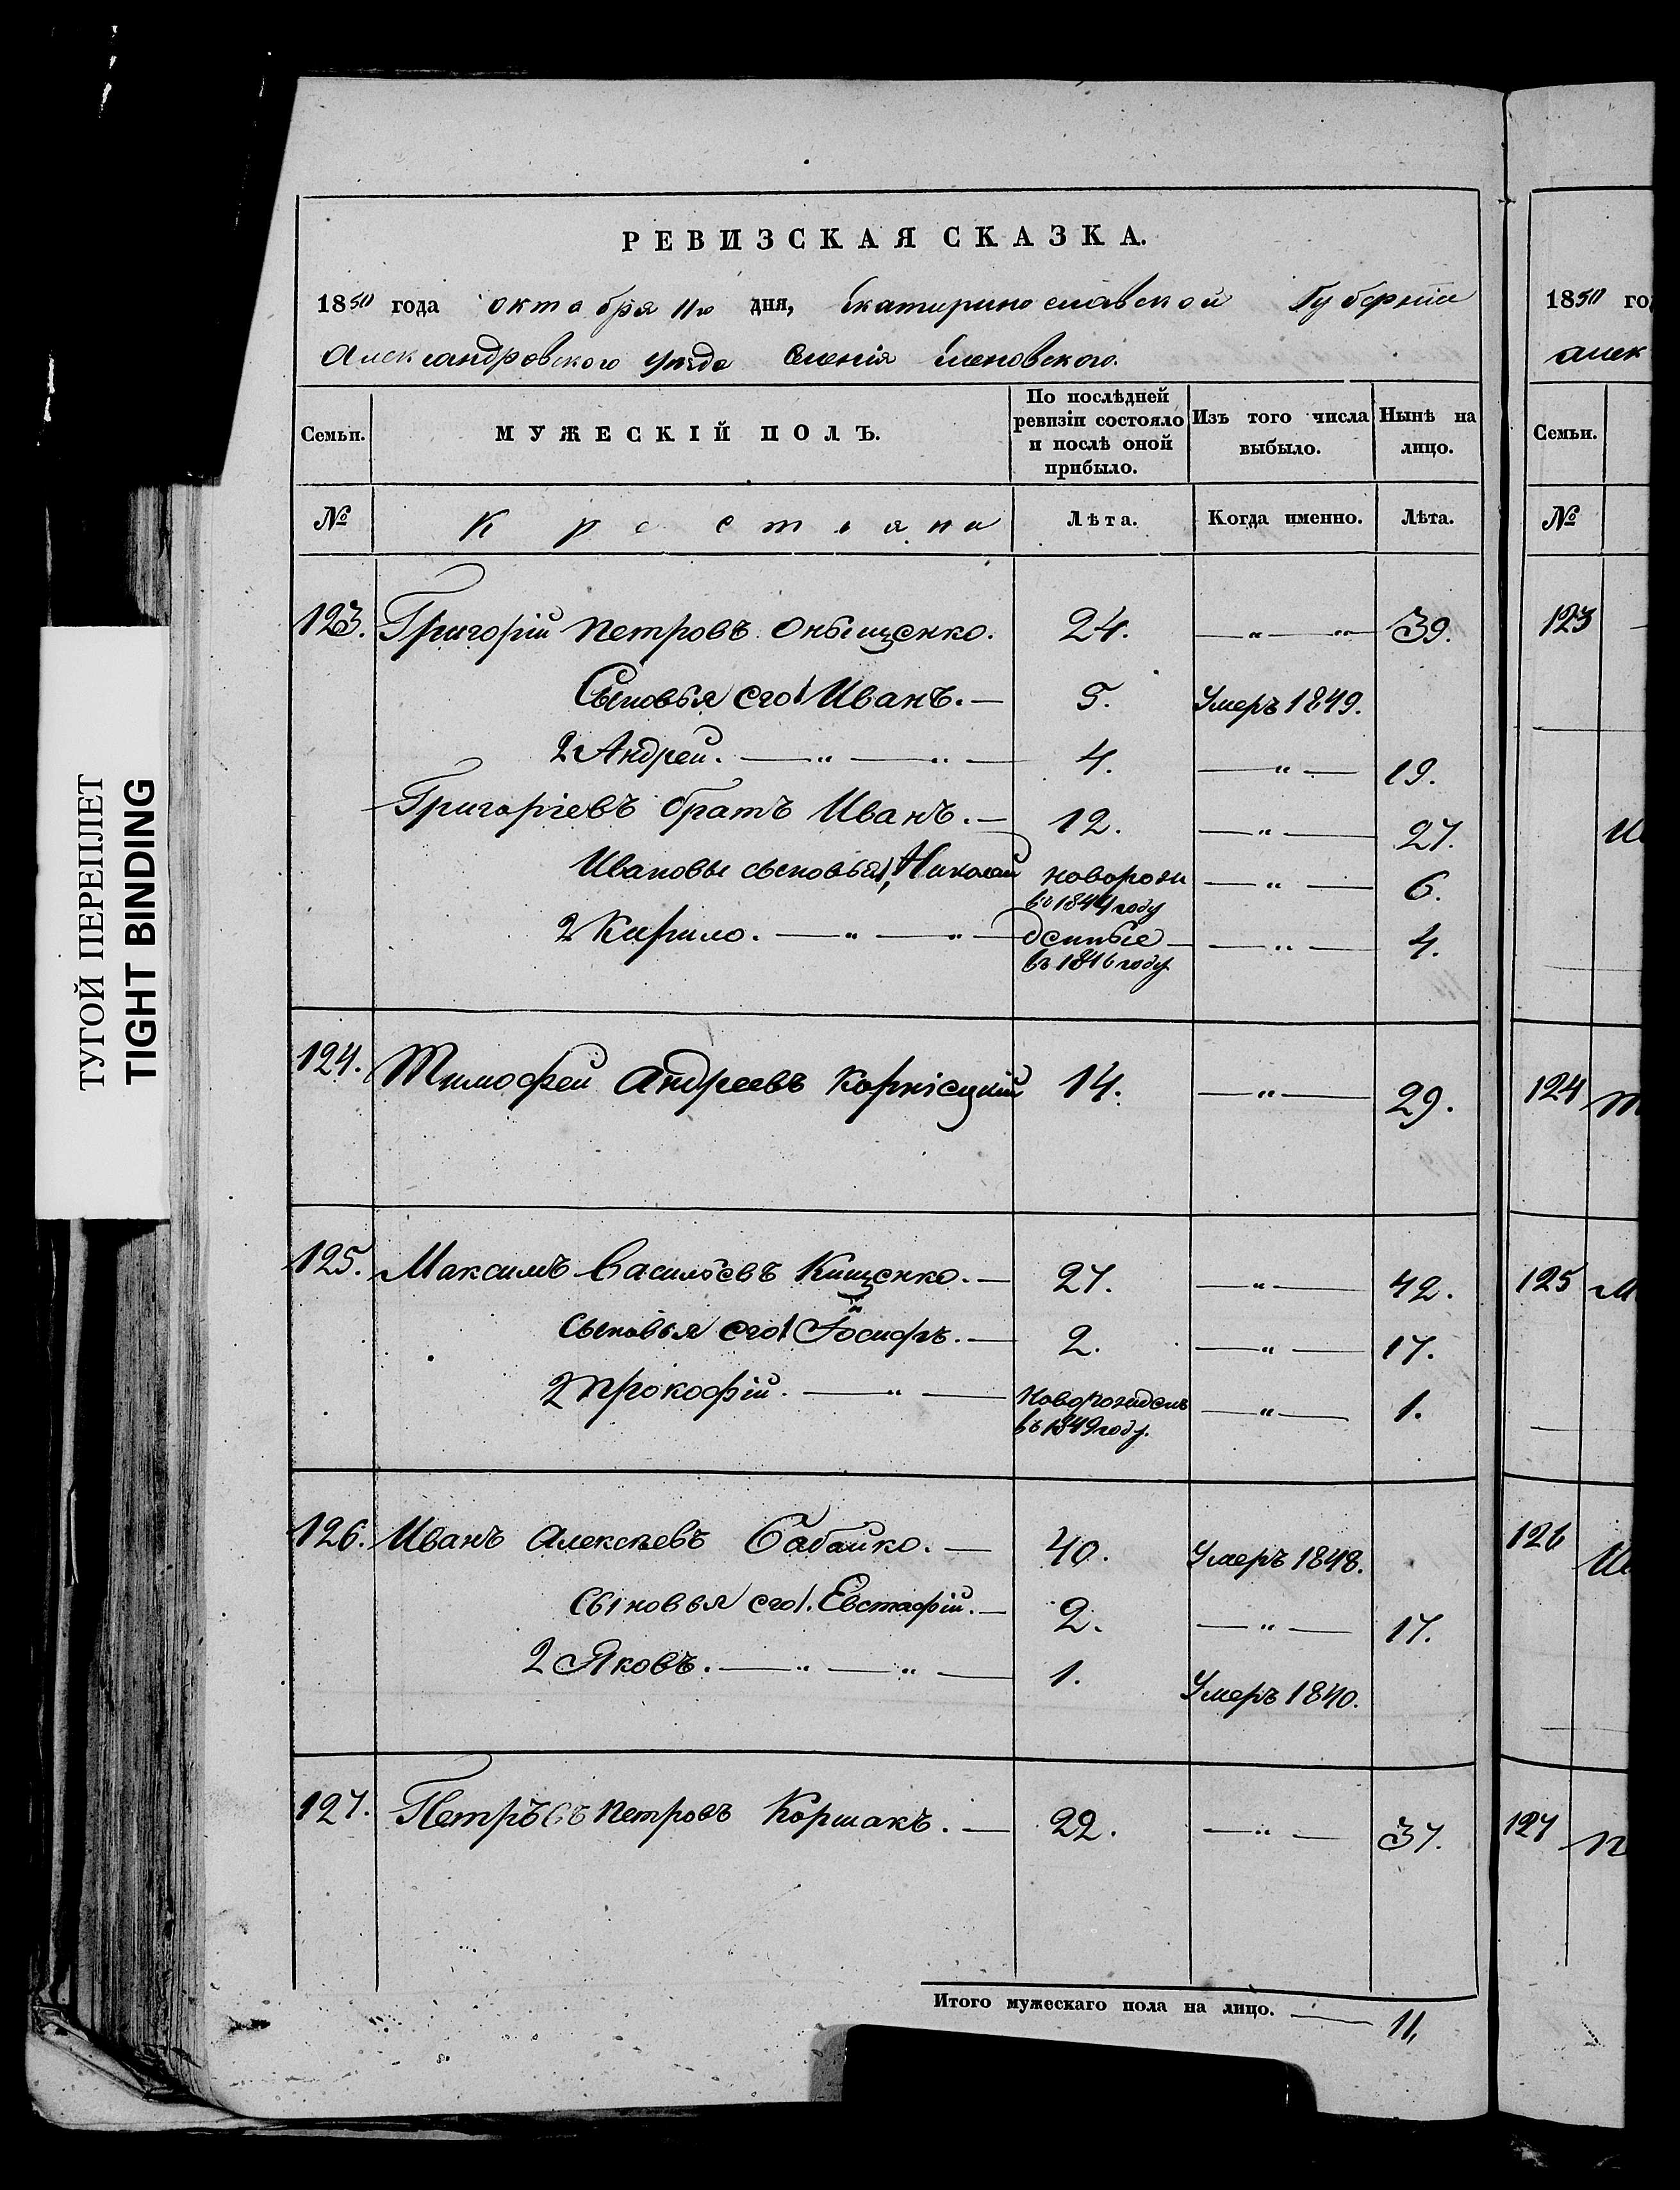 РЕВИЗСКАЯ СКАЗКА.
1850 года октября 11го дня, Екатеринославской Губерніи
Александровского уезда Селенія Еленовского.
Семьи. МУЖЕСКІЙ ПОЛЪ. По послѣдней ревизіи состояло и послѣ оной прибыло. Изъ того числа выбыло. Нынѣ на лицо.
№ Крестьяне Лѣта. Когда именно. Лѣта.
123. Григорій Петровъ Оныщенко. 24. — „ — „ — 39.
Сыновья его 1 Иванъ. — 5. Умеръ 1849.
2 Андрей. — „ — „ — 4. — „ — 19.
Григоріевъ братъ Иванъ. — 12. — „ — 27.
Ивановы сыновья 1, Николай новорож въ 1844 году — „ — 6.
2 Кирило. — „ — „ — денные въ 1846 году — „ — 4.
124. Тимофей Андреевъ 14. — „ — 29.
125. Максимъ Васильевъ Кищенко. — 27. — „ — 42.
сыновья его 1 Іосифъ. — 2. — „ — 17.
2 Прокофій. — „ — Новорожденъ въ 1849 году. — „ — 1.
126. Иванъ Алексѣевъ Бабайко. — 40. Умеръ 1848.
Сыновья его 1. Евстафій. — 2. — „ — 17.
2 Яковъ. — „ — „ — 1. Умеръ 1840.
127. Петръ Петровъ Коршакъ. — 22. — „ — 37.
Итого мужескаго пола на лицо. — 11,
1850 го
алек
Семьи.
№
123
124
125
126
127
ТУГОЙ ПЕРЕПЛЕТ
TIGHT BINDING